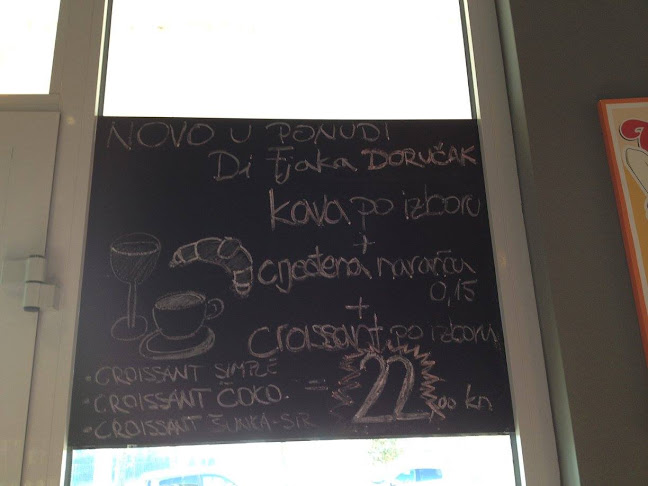 NOVO U PONUDI
Di Fjaka DORUČAK
kava po izboru
+
cijeđena naranča
0,15
+
croissant po izboru
• CROISSANT SIMPLE
• CROISSANT ČOKO
• CROISSANT ŠUNKA-SIR
= 22,00 kn